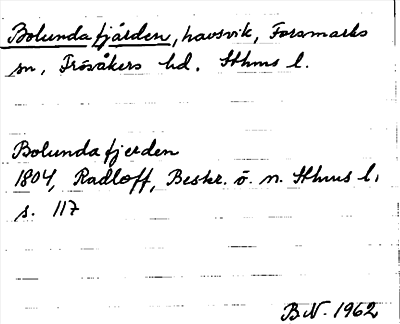 Bolundafjärden, havsvik, Forsmarks
sn, Frösåkers hd. Sthms l.
Bolundafjerden
1804, Radloff, Beskr. ö. n. Sthms l.
s. 117
BN. 1962